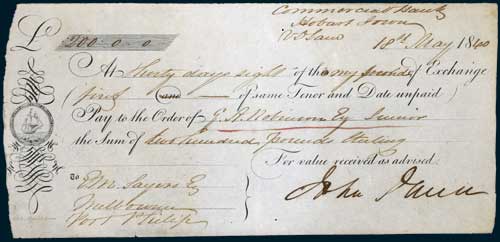 Commercial Bank
Hobart Town
V D Land
£ 200-0-0
18th May 1840
At Thirty days sight of this my second of Exchange
(first and of same Tenor and Date unpaid)
Pay to the Order of G. A. Robinson Esq Senior
the Sum of two hundred pounds Sterling
For value received as advised.
To Edw. Sayers Esq
Melbourne
Port Philip
John